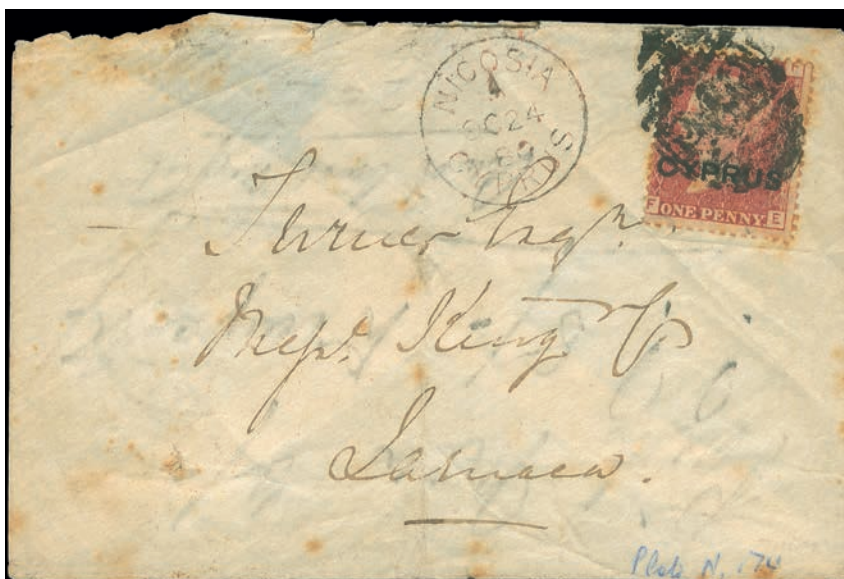 NICOSIA
A
OC 24
80
CYPRUS
CYPRUS
F ONE PENNY E
Turner Esqr.
Messrs. King & Co
Larnaca.
Plate N. 174